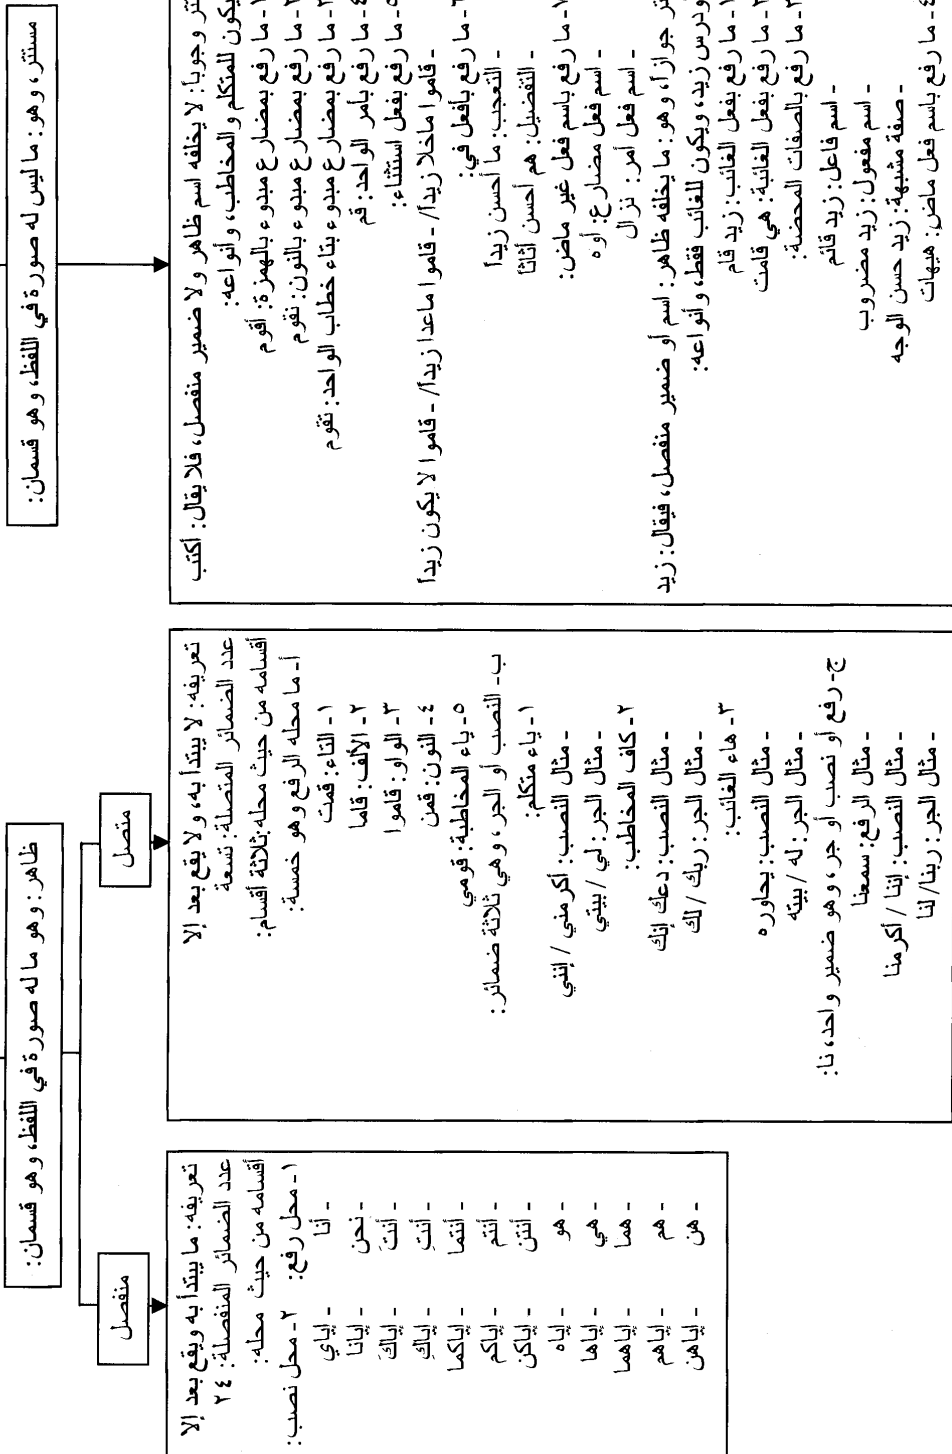 مستتر، وهو: ما ليس له صورة في اللفظ، وهو قسمان:
وجوبا: لا يخلفه اسم ظاهر ولا ضمير منفصل، فلا يقال: أكتب
يكون للمتكلم والمخاطب، وأنواعه:
١- ما رفع بمضارع مبدوء بالهمزة: أقوم
٢- ما رفع بمضارع مبدوء بالنون: نقوم
٣- ما رفع بمضارع مبدوء بتاء خطاب الواحد: تقوم
٤- ما رفع بأمر الواحد: قم
٥- ما رفع بفعل استثناء:
- قاموا ماخلا زيداً/ - قاموا ماعدا زيداً/ - قاموا لا يكون زيداً
٦- ما رفع بأفعل في:
- التعجب: ما أحسن زيداً
- التفضيل: هم أحسن أثاثا
٧- ما رفع باسم فعل غير ماض:
- اسم فعل مضارع: أوه
- اسم فعل أمر: نزال
جوازاً، وهو: ما يخلفه ظاهر: اسم أو ضمير منفصل، فيقال: زيد
ودرس زيد، ويكون للغائب فقط، وأنواعه:
١- ما رفع بفعل الغائب: زيد قام
٢- ما رفع بفعل الغائبة: هي قامت
٣- ما رفع بالصفات المحضة:
- اسم فاعل: زيد قائم
- اسم مفعول: زيد مضروب
- صفة مشبهة: زيد حسن الوجه
٤- ما رفع باسم فعل ماض: هيهات
ظاهر: وهو ما له صورة في اللفظ، وهو قسمان:
متصل
تعريفه: لا يبتدأ به، ولا يقع بعد إلا
عدد الضمائر المتصلة: تسعة
أقسامه من حيث محله: ثلاثة أقسام:
أ- ما محله الرفع وهو خمسة:
١- التاء: قمت
٢- الألف: قاما
٣- الواو: قاموا
٤- النون: قمن
٥- ياء المخاطبة: قومي
ب- النصب أو الجر، وهي ثلاثة ضمائر:
١- ياء متكلم:
- مثال النصب: أكرمني / إنني
- مثال الجر: لي / بيتي
٢- كاف المخاطب:
- مثال النصب: دعك إنك
- مثال الجر: ربك / لك
٣- هاء الغائب:
- مثال النصب: يحاوره
- مثال الجر: له / بيته
ج- رفع أو نصب أو جر، وهو ضمير واحد، نا:
- مثال الرفع: سمعنا
- مثال النصب: إننا / أكرمنا
- مثال الجر: ربنا/ لنا
منفصل
تعريفه: ما يبتدأ به ويقع بعد إلا
عدد الضمائر المنفصلة: ٢٤
أقسامه من حيث محله:
١- محل رفع: ٢- محل نصب:
- أنا - إياي
- نحن - إيانا
- أنتَ - إياكَ
- أنتِ - إياكِ
- أنتما - إياكما
- أنتم - إياكم
- أنتن - إياكن
- هو - إياه
- هي - إياها
- هما - إياهما
- هم - إياهم
- هن - إياهن